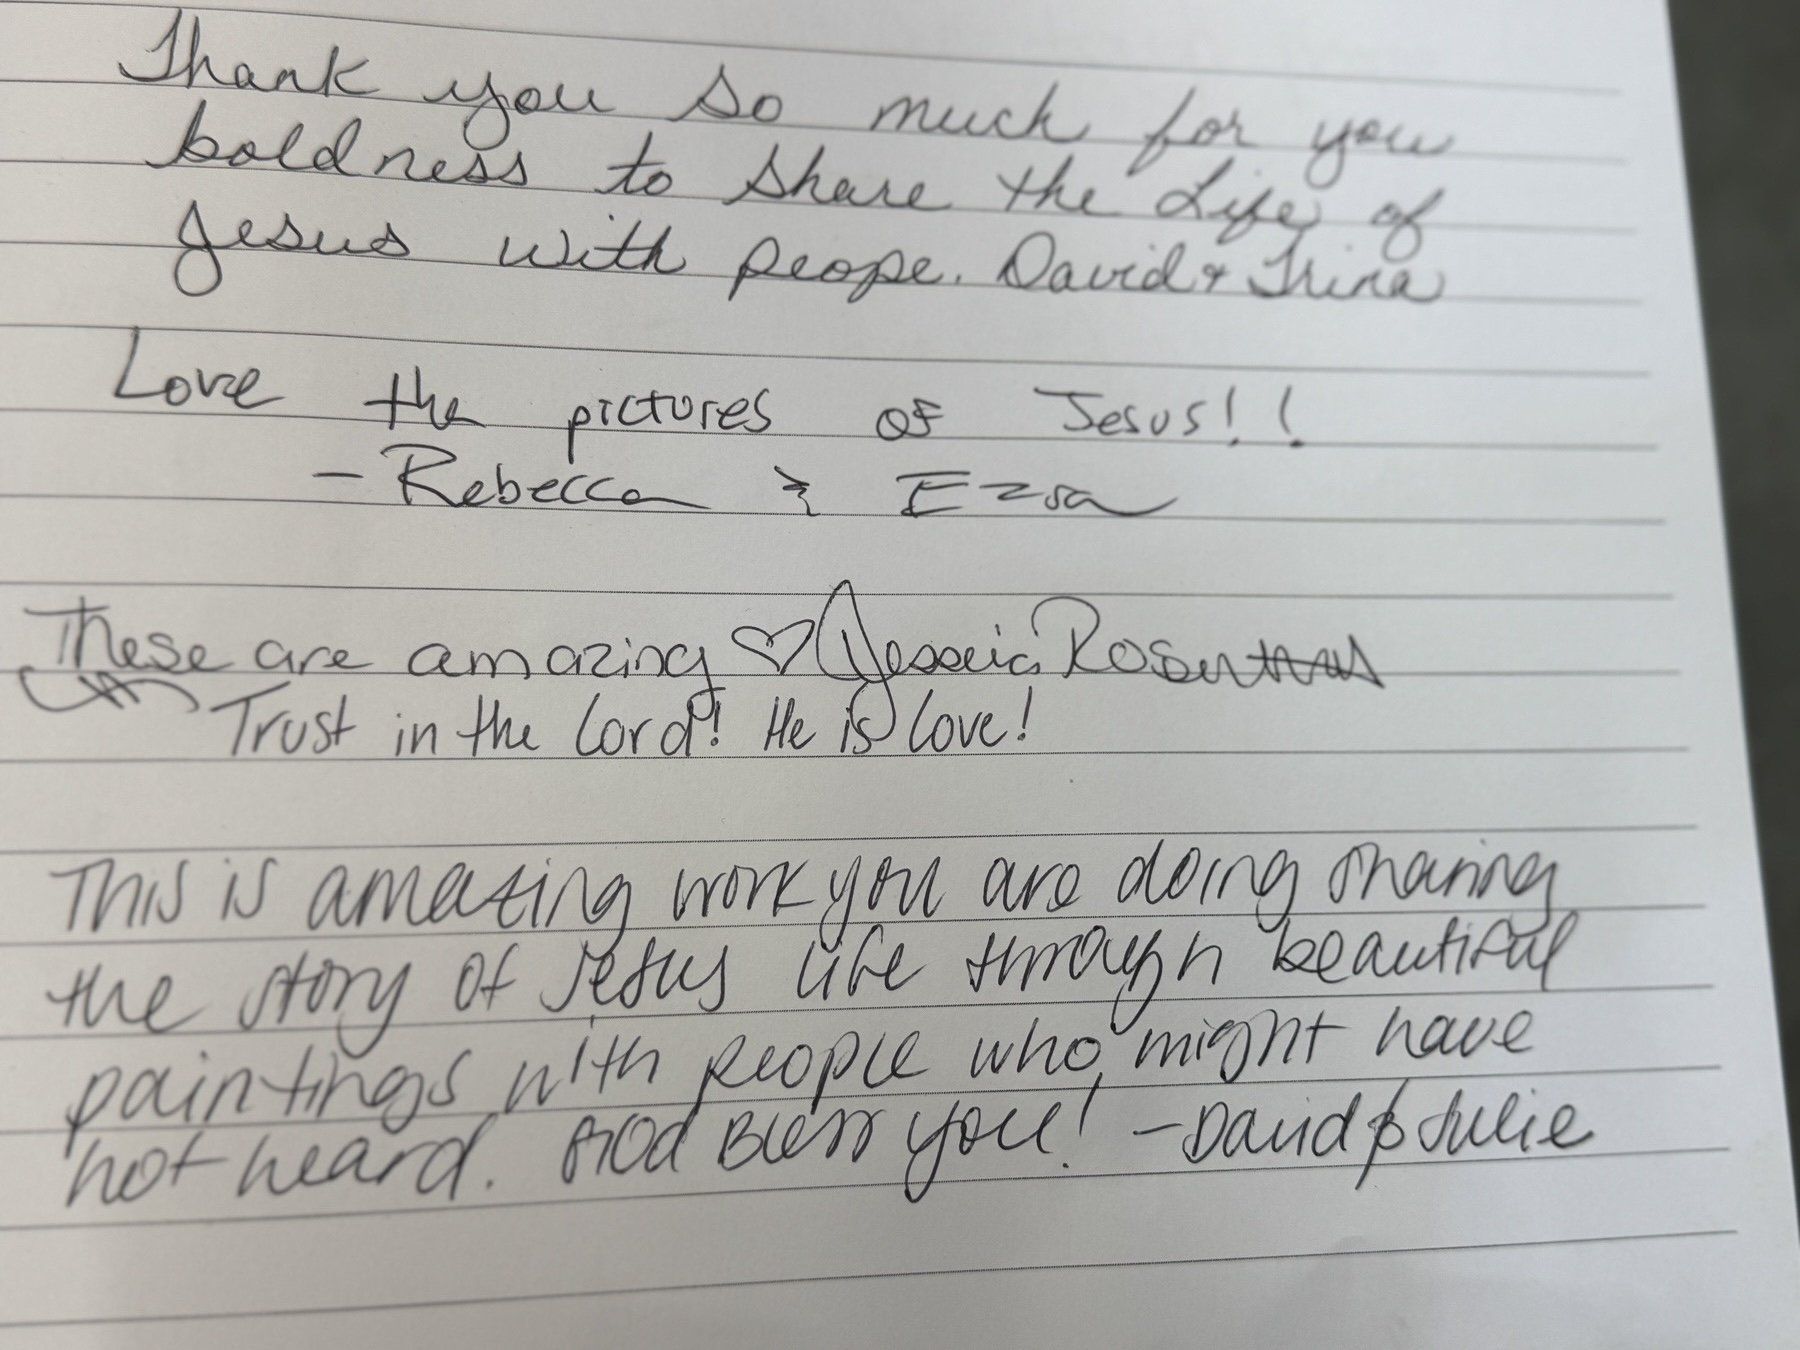 Thank you so much for you
boldness to share the Life of
Jesus with peope. David & Trina
Love the pictures of Jesus!!
- Rebecca & Ezra
These are amazing ♡ Jessica
Trust in the Lord! He is love!
This is amazing work you are doing sharing
the story of Jesus life through beautiful
paintings with people who might have
not heard. God Bless you! - David & Julie